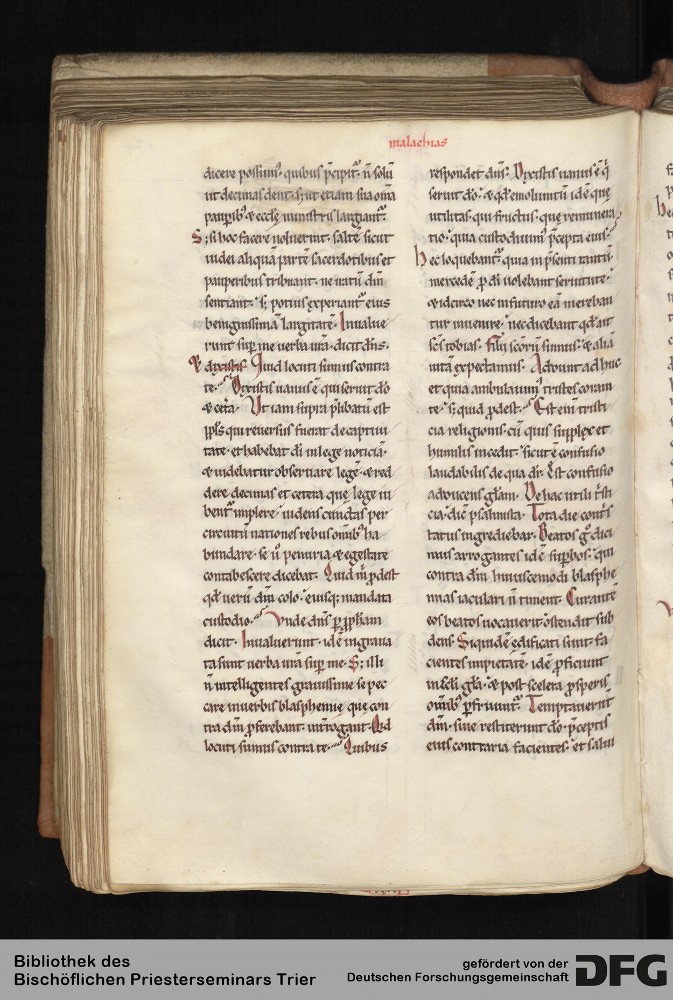 malachias
dicere possum᷒ · quibus p̄cipit᷒ · n̄ solū
ut decimas dent · s; ut etiam sua om̄a
paup̱ibꝰ & eccl̄ę ministris largiant᷒ ·
S; si hoc facere noluerint · saltē sicut
iudei aliquā partē sacerdotibus et
pauperibus tribuant · ne iratū dn̄m
sentiant · s; potius experiant᷒ eius
benignissimā largitatē · Inualue
runt sup̱ me uerba ur̄a · dicit dn̄s ·
& dixistis · Quid locuti sumus contra
te · Dixistis uanus ē qui seruit dō
& cetͣa · Ut iam supra p̄libatū est
pp̄ls qui reuersus fuerat de captiui
tate · et habebat dī in lege noticiā ·
& uidebatur obseruare legē · & red
dere decimas et cetera quę lege iu
bent᷒ implere · uidens cunctas per
circuitū nationes rebus om̄ibꝰ ha
bundare · se ū penuria & egestate
contabescere dicebat · Quid m̄ p̱dest
qd̄ uerū dm̄ colo · eiusq; mandata
custodio · Vnde dn̄s p̱ pp̱ham
dicit · Inualuerunt · idē ingraua
ta sunt uerba ur̄a sup̱ me · S; illi
n̄ intelligentes grauissime se pec
care in uerbis blasphemię quę con
tra dn̄m p̱ferebant · int̄rogant · Qid
locuti sumus contra te · Quibus
respondet dn̄s · Dixistis uanus ē q̇
seruit dō · & qd̄ emolumtū idē quę
utilitas · qui fructus · quę remunera
tio · quia custodiuim᷒ p̄cepta eius ·
Hec loquebant᷒ · quia in p̄senti tantū
mercedē p̱ dī uolebant seruitute ·
& idcirco nec in futuro eā mereban
tur inuenire · nec dicebant qd̄ ait
sc̄s tobias · Filii scōrū sumus · & aliā
uitā expectamus · Adiciunt adhuc
et quia ambulauim᷒ tristes coram
te · s; quid p̱dest · Est eni tristi
cia religionis · cū quis supplex et
humilis incedit · sicut ē confusio
laudabilis de qua dr̄ · Est confusio
adducens gl̄am · De hac utili tͥsti
cia · dic̄ psalmista · Tota die cont͛s
tatus ingrediebar · Beatos g͛ dici
mus arrogantes idē sup̱bos · qui
contra dm̄ huiuscemodi blasphe
mias iaculari n̄ timent · Curantē
eos beatos uocauerit ostendit sub
dens · Siquidē edificati sunt fa
cientes impietatē · idē p̱ficiunt
in sc̄li gl̄a · & post scelera p̱speris
om̄ibꝰ p̱fruunt᷒ · Temptauerūt
dm̄ · siue restiterunt dō · p̄ceptis
eius contraria facientes · et salui
Bibliothek des
Bischöflichen Priesterseminars Trier
gefördert von der
Deutschen Forschungsgemeinschaft
DFG